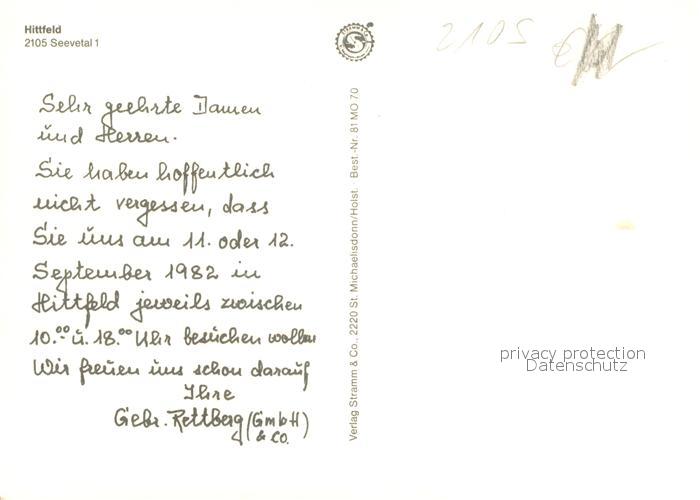 Hittfeld
2105 Seevetal 1
2105
Sehr geehrte Damen
und Herren.
Sie haben hoffentlich
nicht vergessen, dass
Sie uns am 11. oder 12.
September 1982 in
Hittfeld jeweils zwischen
10.00 u. 18.00 Uhr besuchen wollen
Wir freuen uns schon darauf
Ihre
Gebr. Rettberg (GmbH
& Co.)
Verlag Stramm & Co., 2220 St. Michaelisdonn/Holst. Best.-Nr. 81 MO 70
privacy protection
Datenschutz